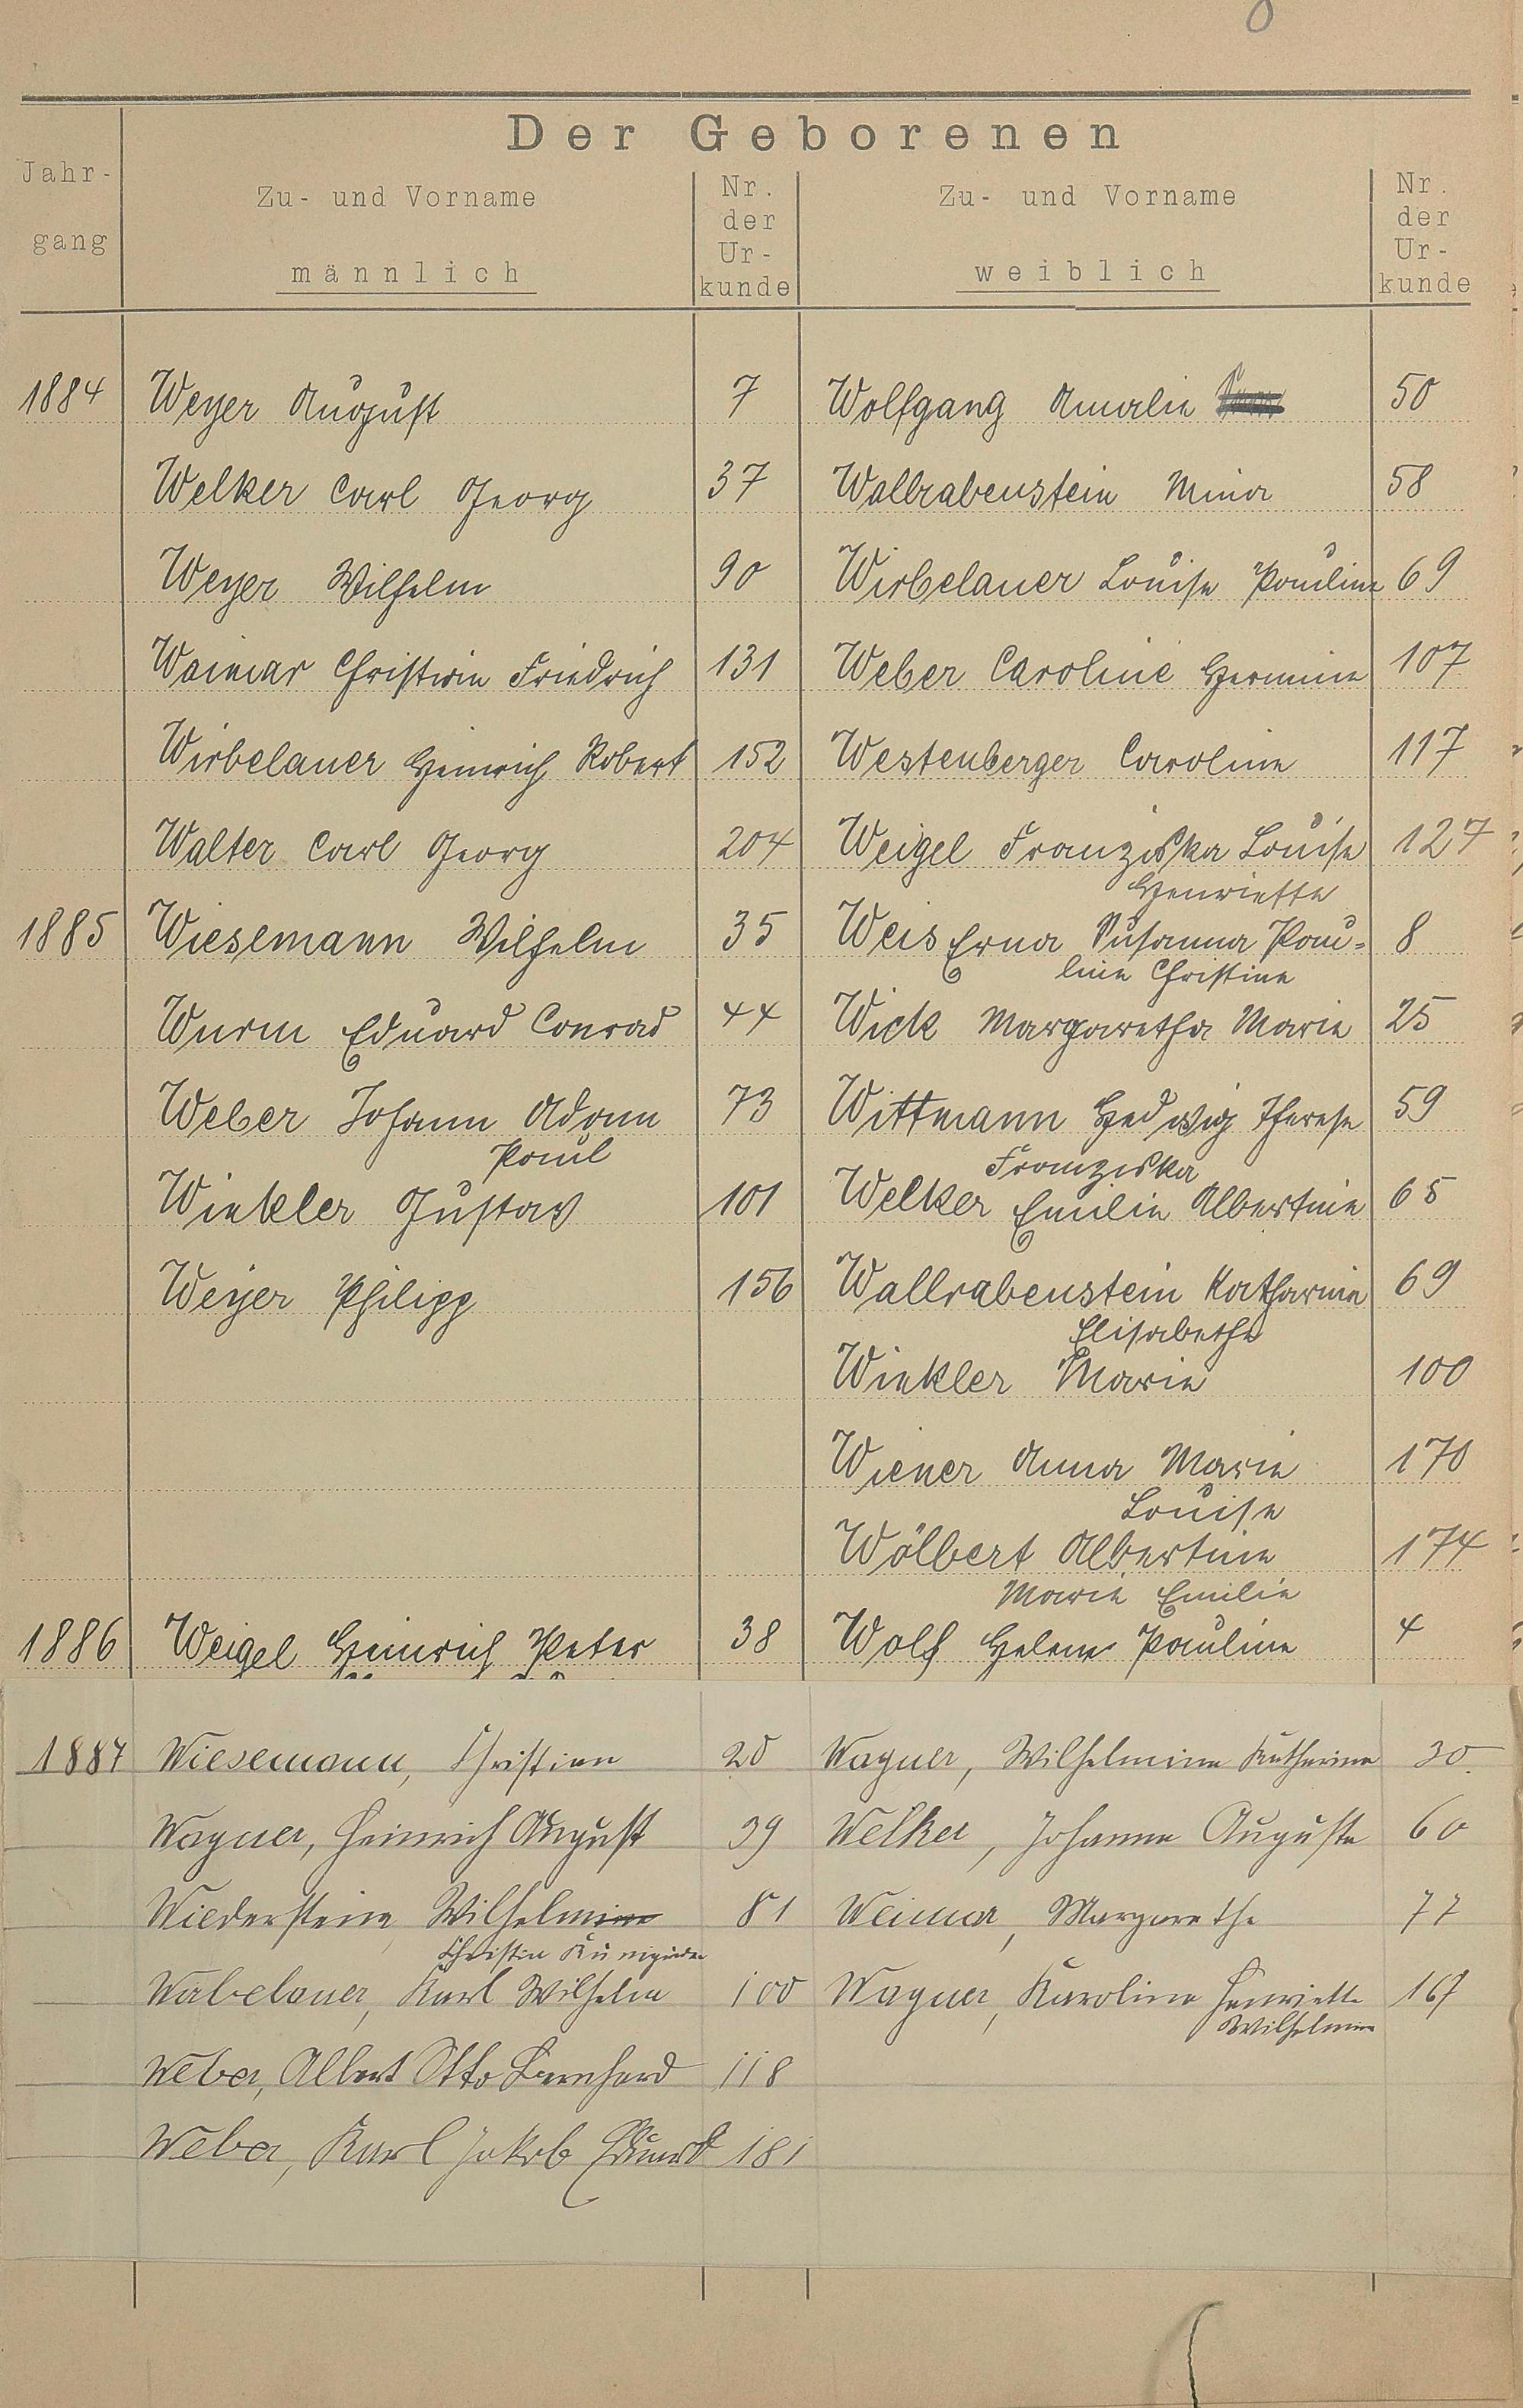 Der Geborenen
Jahr-
gang
Zu- und Vorname
männlich
Nr.
der
Ur-
kunde
Zu- und Vorname
weiblich
Nr.
der
Ur-
kunde
1884 Weyer August 7 Wolfgang Amalie 50
Welker Carl Georg 37 Wallrabenstein Mina 58
Weyer Wilhelm 90 Wirbelauer Louise Pauline 69
Weimar Christian Friedrich 131 Weber Caroline Hermine 107
Wirbelauer Heinrich Robert 152 Westenberger Caroline 117
Walter Carl Georg 204 Weigel Franziska Louise 127
Henriette
1885 Wiesemann Wilhelm 35 Weis Erna Susanna Pau- 8
line Christine
Wurm Eduard Conrad 44 Wick Margaretha Marie 25
Weber Johann Adam 73 Wittmann Hedwig Therese 59
Paul Franziska
Winkler Gustav 101 Welker Emilie Albertine 65
Weyer Philipp 156 Wallrabenstein Katharine 69
Elisabethe
Winkler Marie 100
Wiener Anna Marie 170
Louise
Wölbert Albertine 174
Marie Emilie
1886 Weigel Heinrich Peter 38 Wolf Helene Pauline 4
1887 Wiesemann, Christian 20 Wagner, Wilhelmine Katharina 30.
Wagner, Heinrich August 39 Welker, Johanna Auguste 60
Wiederstein, Wilhelmine 81 Weimar, Margarethe 77
Christin
Wirbelauer, Karl Wilhelm 100 Wagner, Karoline Henriette 167
Wilhelmine
Weber, Albert Otto Bernhard 118
Weber, Karl Jakob Eduard 181